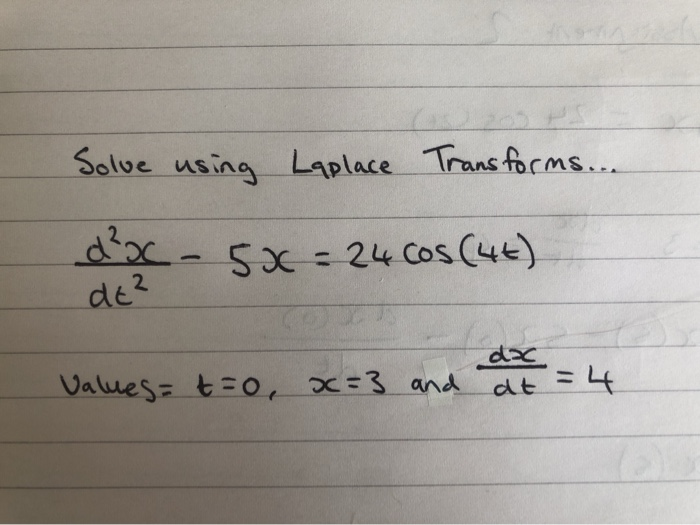 Solve using Laplace Transforms...
d²x/dt² - 5x = 24 cos(4t)
Values = t=0, x=3 and dx/dt = 4